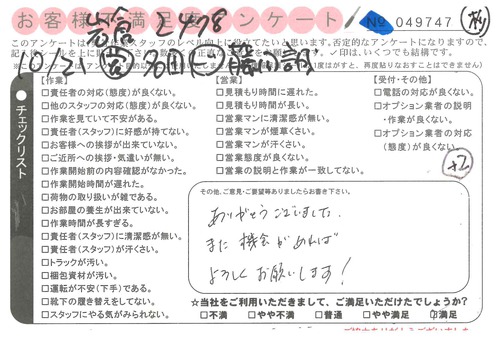 お客様満足アンケート
No 049747
岩倉 2478
10-21
このアンケートは
スタッフのレベル向上に役立てたいと思います。否定的なアンケートになりますので、
✓印はいくつでも結構です。
チェックリスト
【作業】
□責任者の対応(態度)が良くない。
□他のスタッフの対応(態度)が良くない。
□作業を見ていて不安がある。
□責任者(スタッフ)に好感が持てない。
□お客様への挨拶が出来ていない。
□ご近所への挨拶・気遣いが無い。
□作業開始前の内容確認がなかった。
□作業開始時間が遅れた。
□荷物の取り扱いが雑である。
□お部屋の養生が出来ていない。
□作業時間が長すぎる。
□責任者(スタッフ)に清潔感が無い。
□責任者(スタッフ)が汗くさい。
□トラックが汚い。
□梱包資材が汚い。
□運転が不安(下手)である。
□靴下の履き替えをしてない。
□スタッフにやる気がみられない。
【営業】
□見積もり時間に遅れた。
□見積もり時間が長い。
□営業マンに清潔感が無い。
□営業マンが煙草くさい。
□営業マンが汗くさい。
□営業態度が良くない。
□営業の説明と作業が一致してない。
【受付・その他】
□電話の対応が良くない。
□オプション業者の説明
・作業が良くない。
□オプション業者の対応
(態度)が良くない。
+2
その他、ご意見・ご要望等ありましたらお書き下さい。
ありがとうございました。
また機会があれば
よろしくお願いします!
☆当社をご利用いただきまして、ご満足いただけたでしょうか?
□不満 □やや不満 □普通 □やや満足 ☑満足